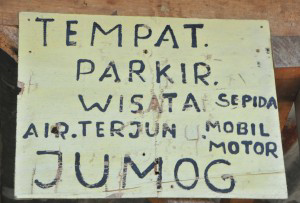 TEMPAT.
PARKIR.
WISATA SEPIDA
AIR.TERJUN MOBIL
MOTOR
JUM.OG